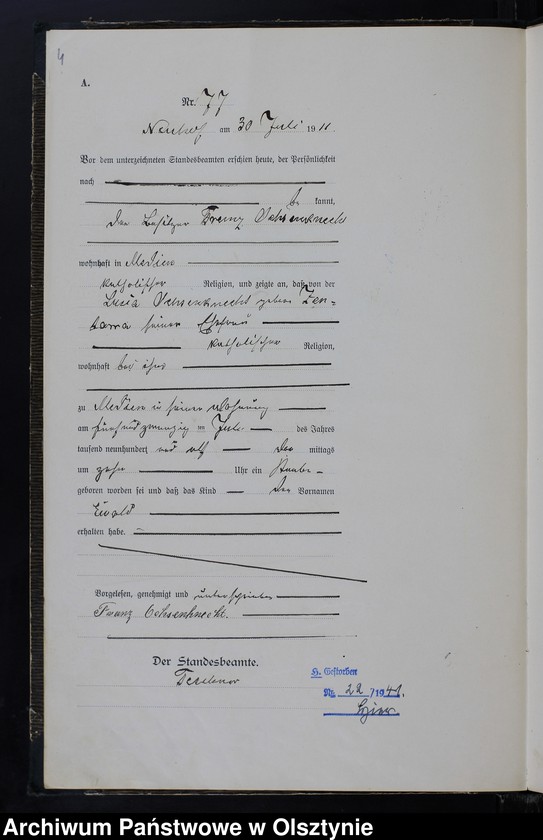 4
A.
Nr. 77
am 30 Juli 1911
Vor dem unterzeichneten Standesbeamten erschien heute, der Persönlichkeit
nach
be kannt,
der Besitzer Franz Ochsenknecht
wohnhaft in
katholischer Religion, und zeigte an, daß von der
Ochsenknecht geborene
seiner Ehefrau
katholischer Religion,
wohnhaft bei ihm
zu in seiner Wohnung
am fünfundzwanzigsten Juli des Jahres
tausend neunhundert und elf mittags
um zehn Uhr ein Knabe
geboren worden sei und daß das Kind den Vornamen
Ewald
erhalten habe.
Vorgelesen, genehmigt und unterschrieben
Franz Ochsenknecht.
Der Standesbeamte.
H. Gestorben
Nr. 22 / 1941.
Archiwum Państwowe w Olsztynie